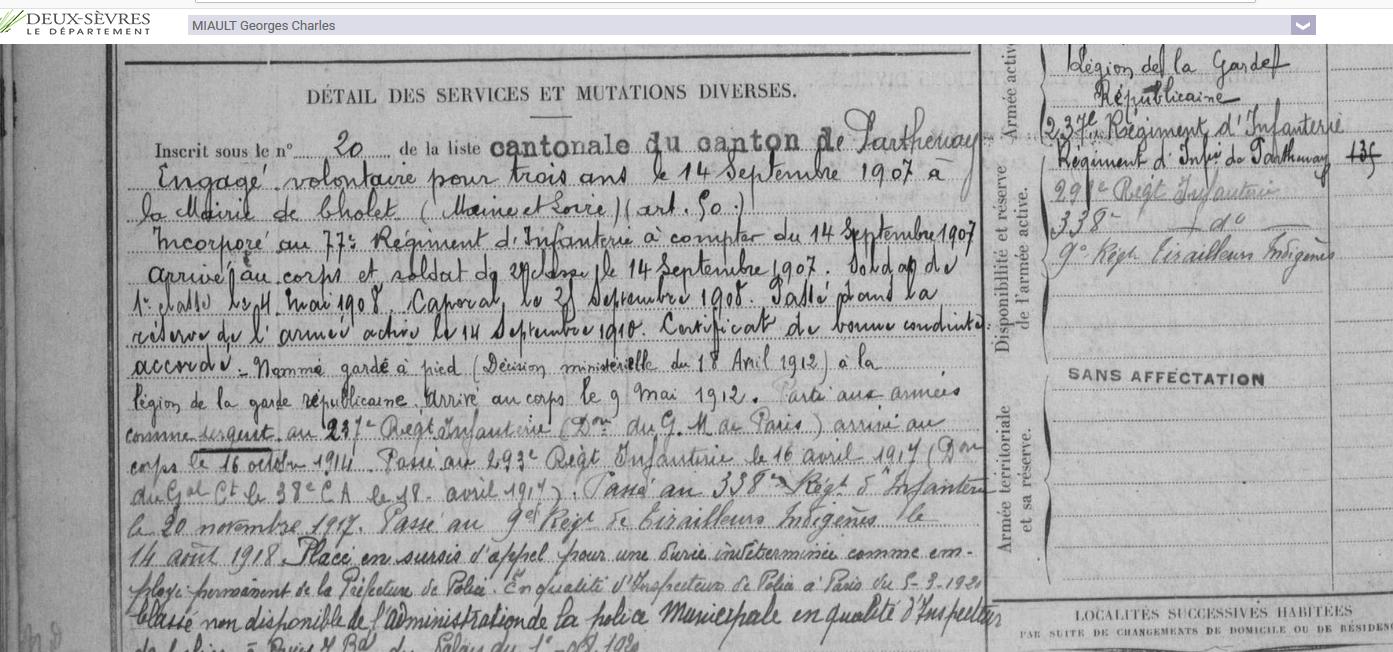 DEUX-SÈVRES
LE DÉPARTEMENT
MIAULT Georges Charles
DÉTAIL DES SERVICES ET MUTATIONS DIVERSES.
Inscrit sous le n° 20 de la liste cantonale du canton de Parthenay
Engagé volontaire pour trois ans le 14 Septembre 1907 à
la Mairie de Cholet (Maine et Loire) (art. 50.)
Incorporé au 77e Régiment d'Infanterie à compter du 14 Septembre 1907
arrivé au corps et soldat de 2e classe le 14 Septembre 1907. Soldat de
1e classe le mai 1908. Caporal le 2 Septembre 1908. Passé dans la
réserve de l'armée active le 14 Septembre 1910. Certificat de bonne conduite
accordé. Nommé garde à pied (Décision ministérielle du 18 Avril 1912) à la
légion de la garde républicaine. Arrivé au corps le 9 mai 1912. Parti aux armées
comme sergent au 237e Régt Infanterie (Don du G. M de Paris) arrivé au
corps le 16 octobre 1914. Passé au 293e Régt Infanterie le 16 avril 1917 (Don
du Gal Ct le 38e CA le 18 avril 1917). Passé au 338e Régt d'Infanterie
le 20 novembre 1917. Passé au 9e Régt de Tirailleurs Indigènes le
14 août 1918. Placé en sursis d'appel pour une durée indéterminée comme em-
ployé permanent de la Préfecture de Police. En qualité d'Inspecteur de Police à Paris du 5-3-1920
Classé non disponible de l'Administration de la police Municipale en qualité d'Inspecteur
de police à Paris 7 Bd du Palais du 1°
Armée active
Légion de la Garde
Républicaine
237e Régiment d'Infanterie
Disponibilité et réserve
de l'armée active.
Régiment d'Infie de Parthenay 135
291e Regt Infanterie
338e d°
9e Régt Tirailleurs Indigènes
Armée territoriale
et sa réserve.
SANS AFFECTATION
LOCALITÉS SUCCESSIVES HABITÉES
PAR SUITE DE CHANGEMENTS DE DOMICILE OU DE RÉSIDEN